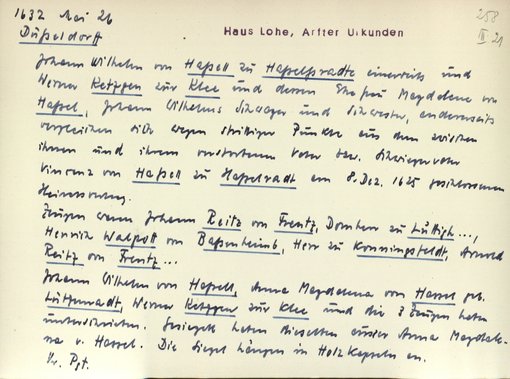 1632 Mai 26
Haus Lohe, Arfter Urkunden
258
III 21
Düßeldorff
Johann Wilhelm von Haßell zu Haßelsradte einerseits und
Werner Ketzgen zur Klee und dessen Ehefrau Magdalene von
Haßel, Johann Wilhelms Schwager und Schwester, anderseits
vergleichen sich wegen strittiger Punkte aus dem zwischen
ihnen und ihrem verstorbenen Vater bzw. Schwiegervater
Vincenz von Haßell zu Haßelradt am 8. Dez. 1625 geschlossenen
Heiratsvertrag.
Zeugen waren Johann Reitz von Frentz, Domherr zu Lüttigh...,
Henrich Walpott von Baßenheimb, Herr zu Konningsfeldt, Arnold
Reitz von Frentz...
Johann Wilhelm von Haßell, Anna Magdalena von Hassel geb.
Lützenradt, Werner Ketzgen zur Klee und die 3 Zeugen haben
unterschrieben. Gesiegelt haben dieselben außer Anna Magdale-
na v. Hassel. Die Siegel hängen in Holzkapseln an.
Or. Pgt.